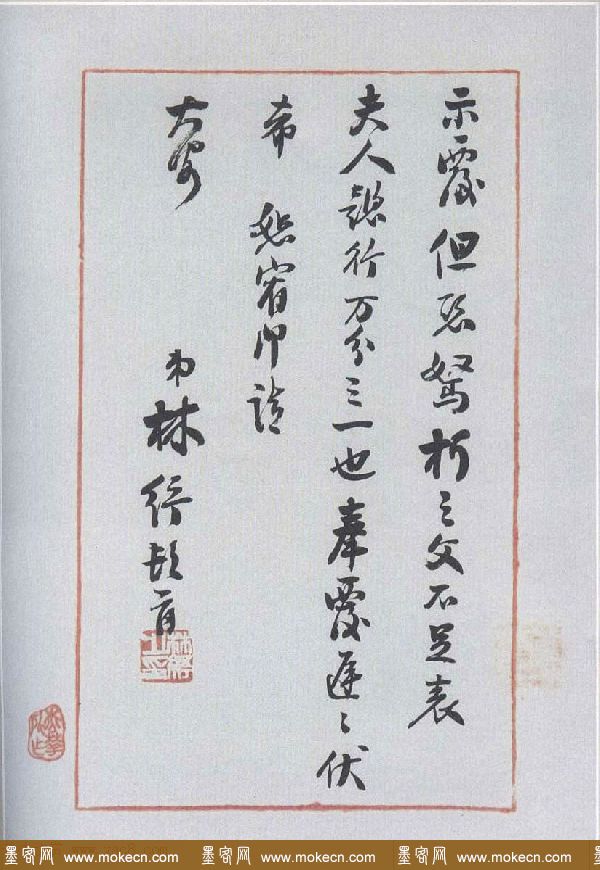 示覆但恐駑朽之文不足表
夫人懿行万分之一也奉覆遲〻伏
希 恕宥即請
大安
弟林紓頓首
墨客网 www.mokecn.com 墨客网 www.mokecn.com 墨客网 www.mokecn.com